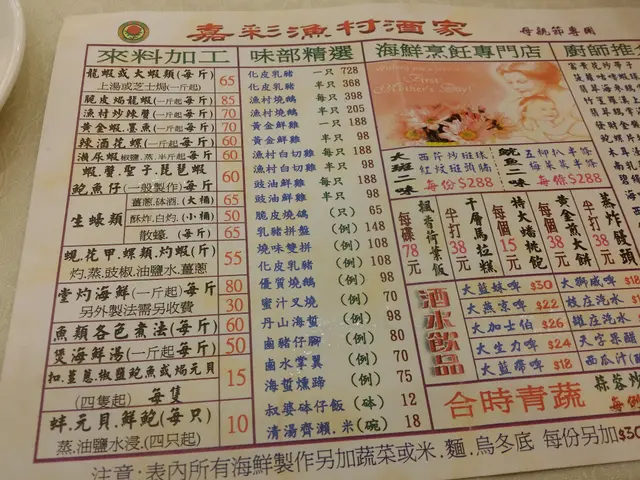 嘉彩漁村酒家
母親節專用
來料加工
龍蝦或大蝦類(每斤) 65
上湯或芝士焗(一斤起)
脆皮焗龍蝦(一斤起每斤) 85
漁村炒辣蟹(一斤起每斤) 70
黃金蝦.墨魚(一斤起每斤) 70
辣酒花螺(一斤起每斤) 60
瀨尿蝦椒鹽.蒸.半斤起每斤 60
蝦.蟹.聖子.琵琶蝦
鮑魚仔(一般製作)每斤 60
生蠔類
薑蔥.砵酒.(大桶) 65
酥炸.白灼.(小桶) 50
散蠔.(每斤) 65
蜆.花甲.螺類.灼蝦(斤) 55
灼.蒸.豉椒.油鹽水.薑蔥
堂灼海鮮(一斤起)每斤 80
另外製法需另收費 30
魚類各色煮法(每斤) 60
煲海鮮湯(一斤起每斤) 50
扣.薑蔥.椒鹽鮑魚或焗元貝 15
(四隻起) 每隻
蚌.元貝.鮮鮑(每只) 10
蒸.油鹽水浸.(四只起)
味部精選
化皮乳豬 一只 728
化皮乳豬 半只 368
漁村燒鵝 每只 398
漁村燒鵝 半只 205
黃金鮮雞 一只 188
黃金鮮雞 半只 98
漁村白切雞 每只 188
漁村白切雞 半只 98
豉油鮮雞 每只 188
豉油鮮雞 半只 98
脆皮燒鴿 (只) 65
乳豬拼盤 (例) 148
燒味雙拼 (例) 108
化皮乳豬 (例) 138
優質燒鵝 (例) 98
蜜汁叉燒 (例) 70
丹山海蜇 (例) 98
鹵豬仔腳 (例) 80
鹵水掌翼 (例) 70
海蜇燻蹄 (例) 75
叔婆砵仔飯 (砵) 12
清湯齊瀨.米 (碗) 18
海鮮烹飪專門店
Mother's Day!
大斑二味
西芹炒斑球
紅炆斑頭腩
每份$288
鮑魚二味
五柳扒半條
每條$288
飄香荷葉飯 每碟78元
千層馬拉糕 半打38元
特大燔桃飽 每個15元
黃金煎大餅 每個38元
蒸炸饅頭 半打38元
酒水飲品
大藍妹啤 $30
大燕京啤 $22
大加士伯 $26
大生力啤 $24
大藍帶啤 $18
大獅威啤
枝庄汽水
罐庄汽水
西瓜汁
合時青蔬
廚師推
注意:表內所有海鮮製作另加蔬菜或米.麵.烏冬底 每份另加$30